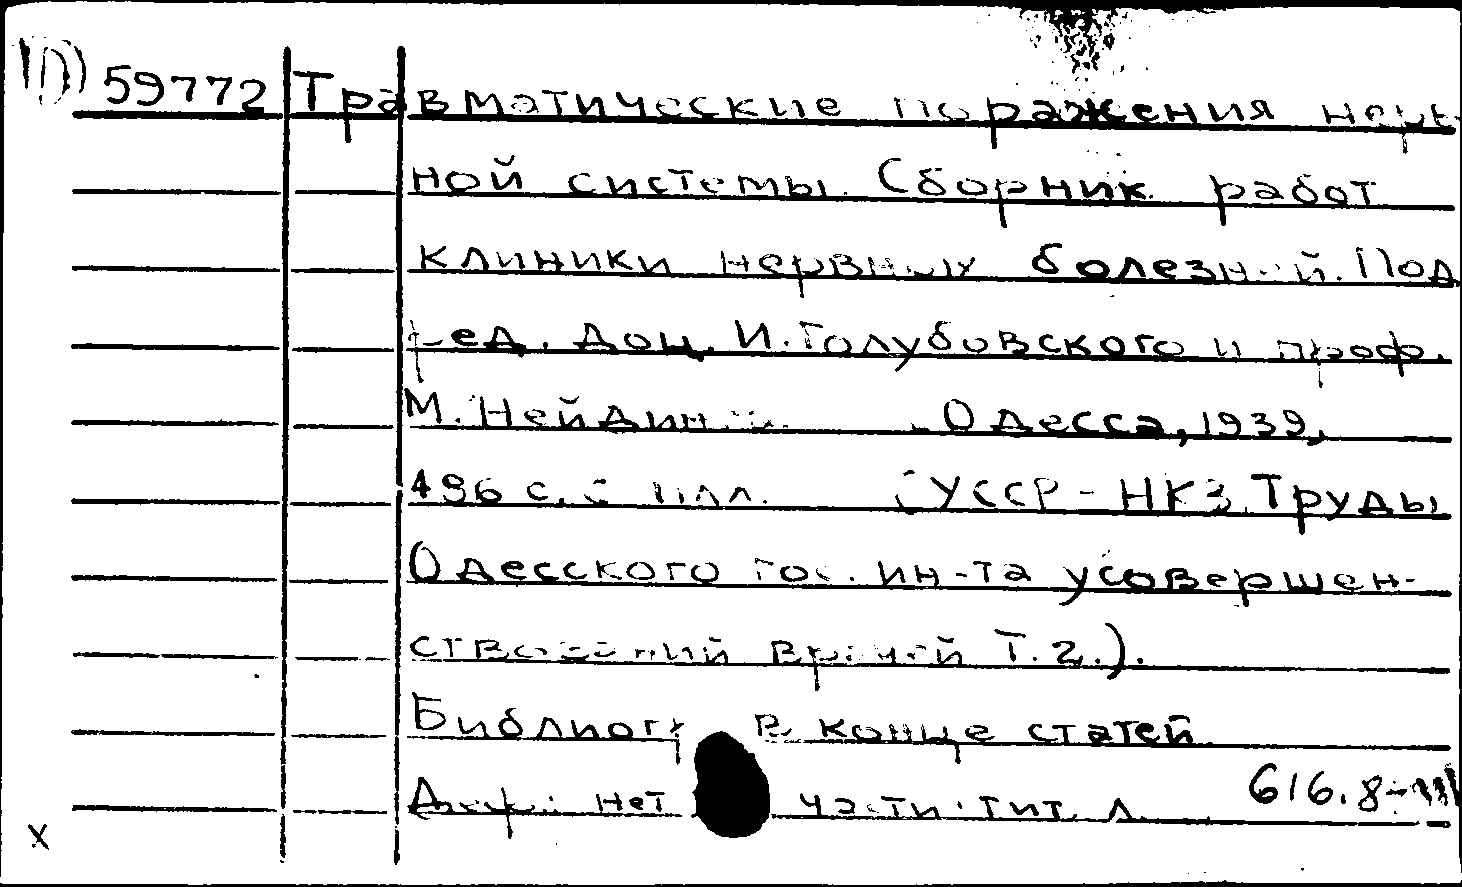 59772 Травматические поражения нерв-
ной системы. Сборник работ
клиники нервных болезней. Под
ред. доц. И. Голубовского и проф.
М. Нейдинг. Одесса, 1939,
496 с. с илл. (УССР - НКЗ. Труды
Одесского гос. ин-та усовершен-
ствований врачей Т. 2.).
Библиогр. в конце статей
нет части тит. л. 616.8-
x